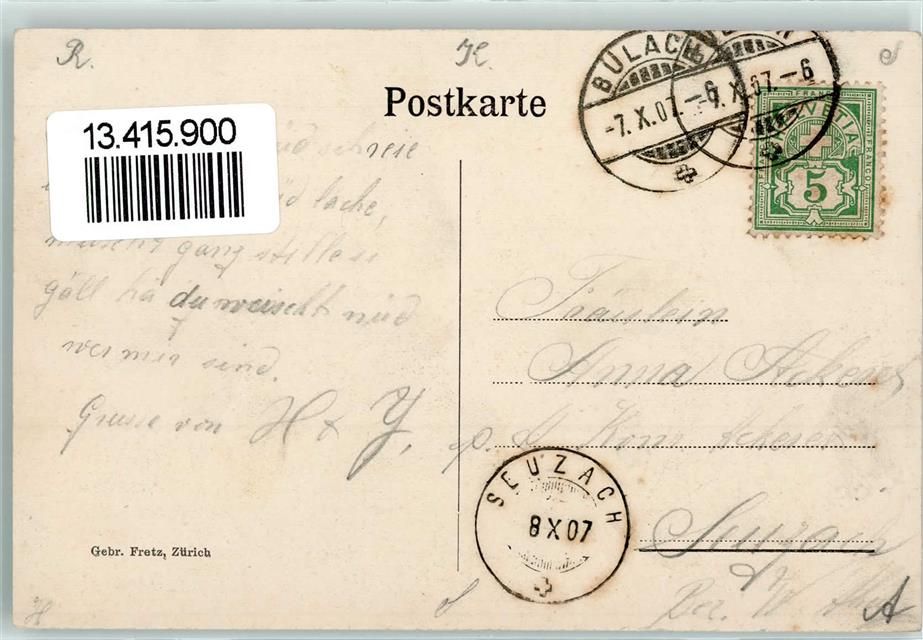 R. K. S
Postkarte
BÜLACH
-7.X.07.-6
BÜLACH
-7.X.07.-6
FRANCO HELVETIA FRANCO
5
13.415.900
nüd schreie
nüd lache,
ganz stille si
gäll hä du weischt nüd
wer mir sind.
Grüsse von H & Y.
Fräulein
Anna Ackeret
p. A Konr. Ackeret
Seuzach
SEUZACH
8 X 07
Gebr. Fretz, Zürich
H S A